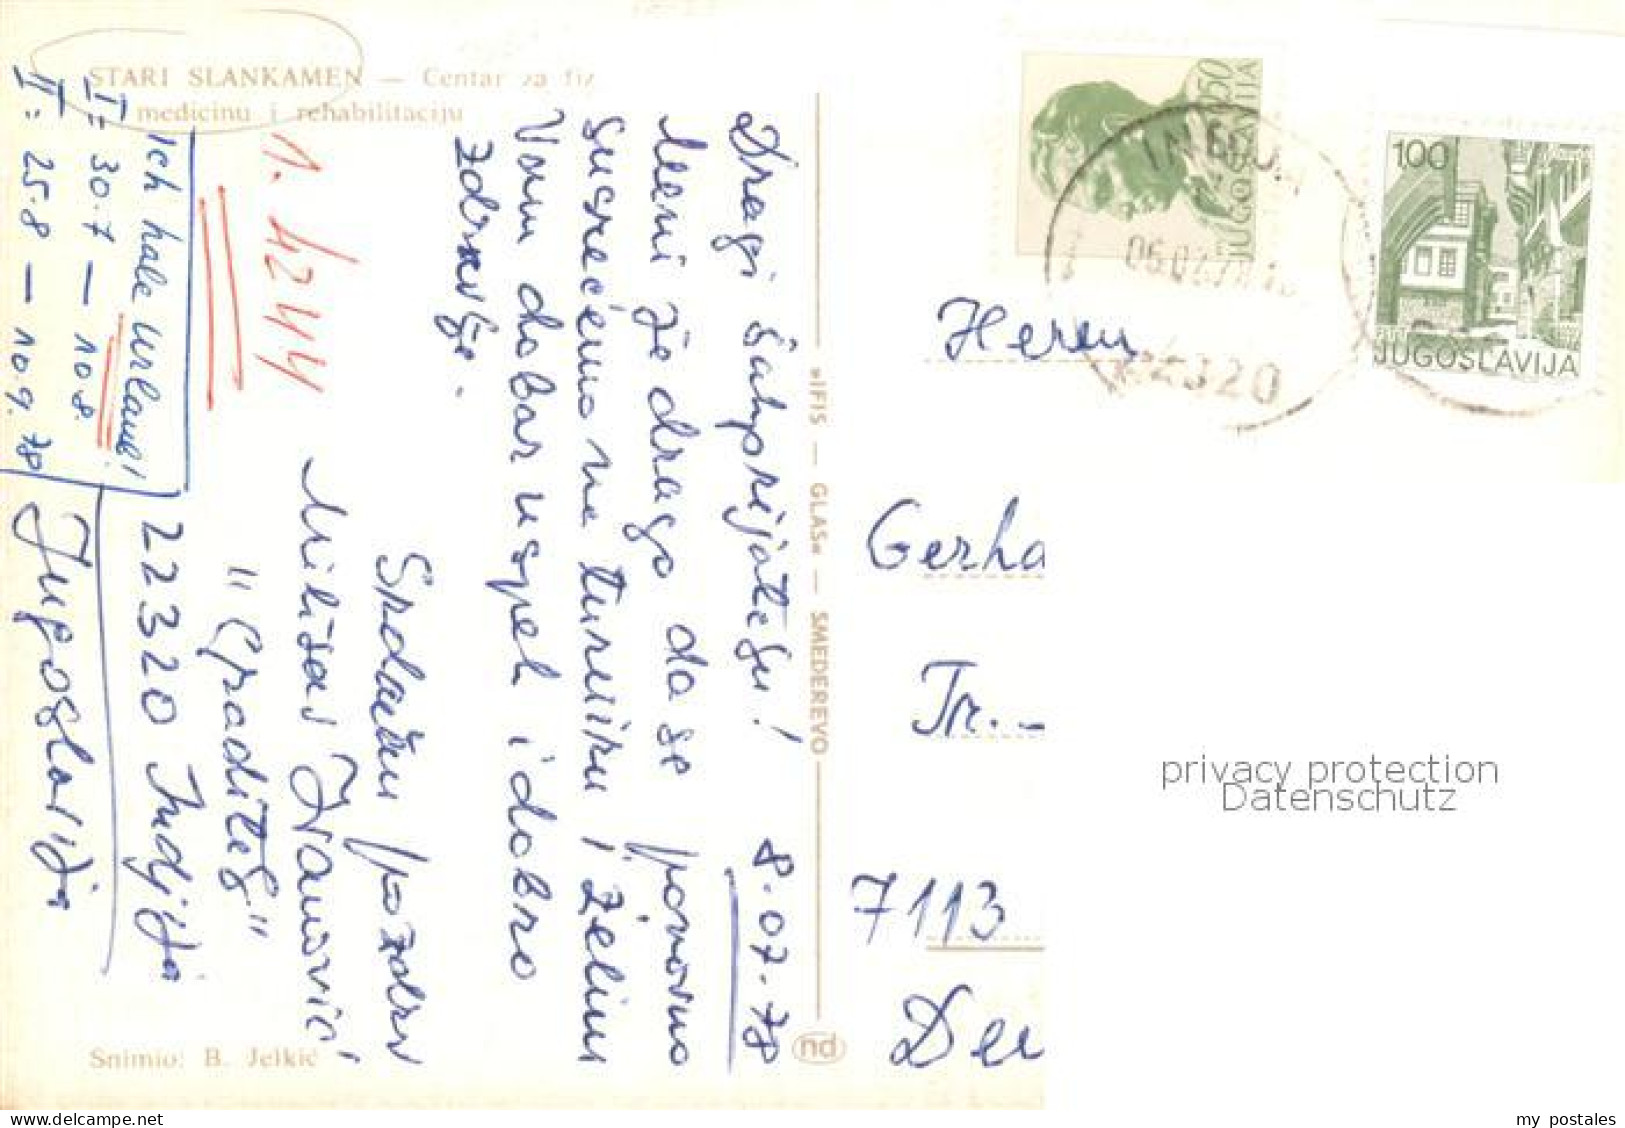 STARI SLANKAMEN — Centar za fiz
medicinu i rehabilitaciju
Dragi šahprijatelju!
Meni je drago da se ponovno
susrećemo na turniru i želim
Vam dobar uspeh i dobro
zdravlje.
8.07.78
Srdačan pozdrav
Milijan Ivanović
"Graditelj"
22320 Indjija
Jugoslavija
1. h2-h4
Ich habe Urlaub!
I = 30.7 — 10.8.
II = 25.8 — 10.9.78
»IFIS — GLAS« — SMEDEREVO
nd
Snimio: B. Jelkić
50
JUGOSLAVIJA
100
JUGOSLAVIJA
22320
Herrn
Gerha
Tr.-
7113
Deu
privacy protection
Datenschutz
delcampe.net
my_postales